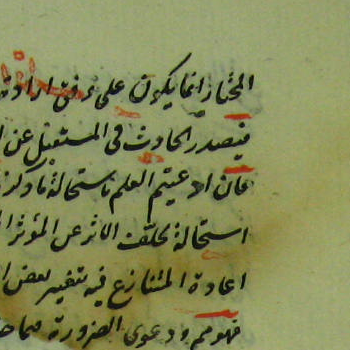 المختار انما يكون على وفق ارادته
فيصدر الحادث في المستقبل عن
فان ادعيتم العلم باستحالة ما ذكر
استحالة تخلف الاثر عن المؤثر
اعادة المتنازع فيه بتغيير بعض
فهومهم ودعوى الضرورة